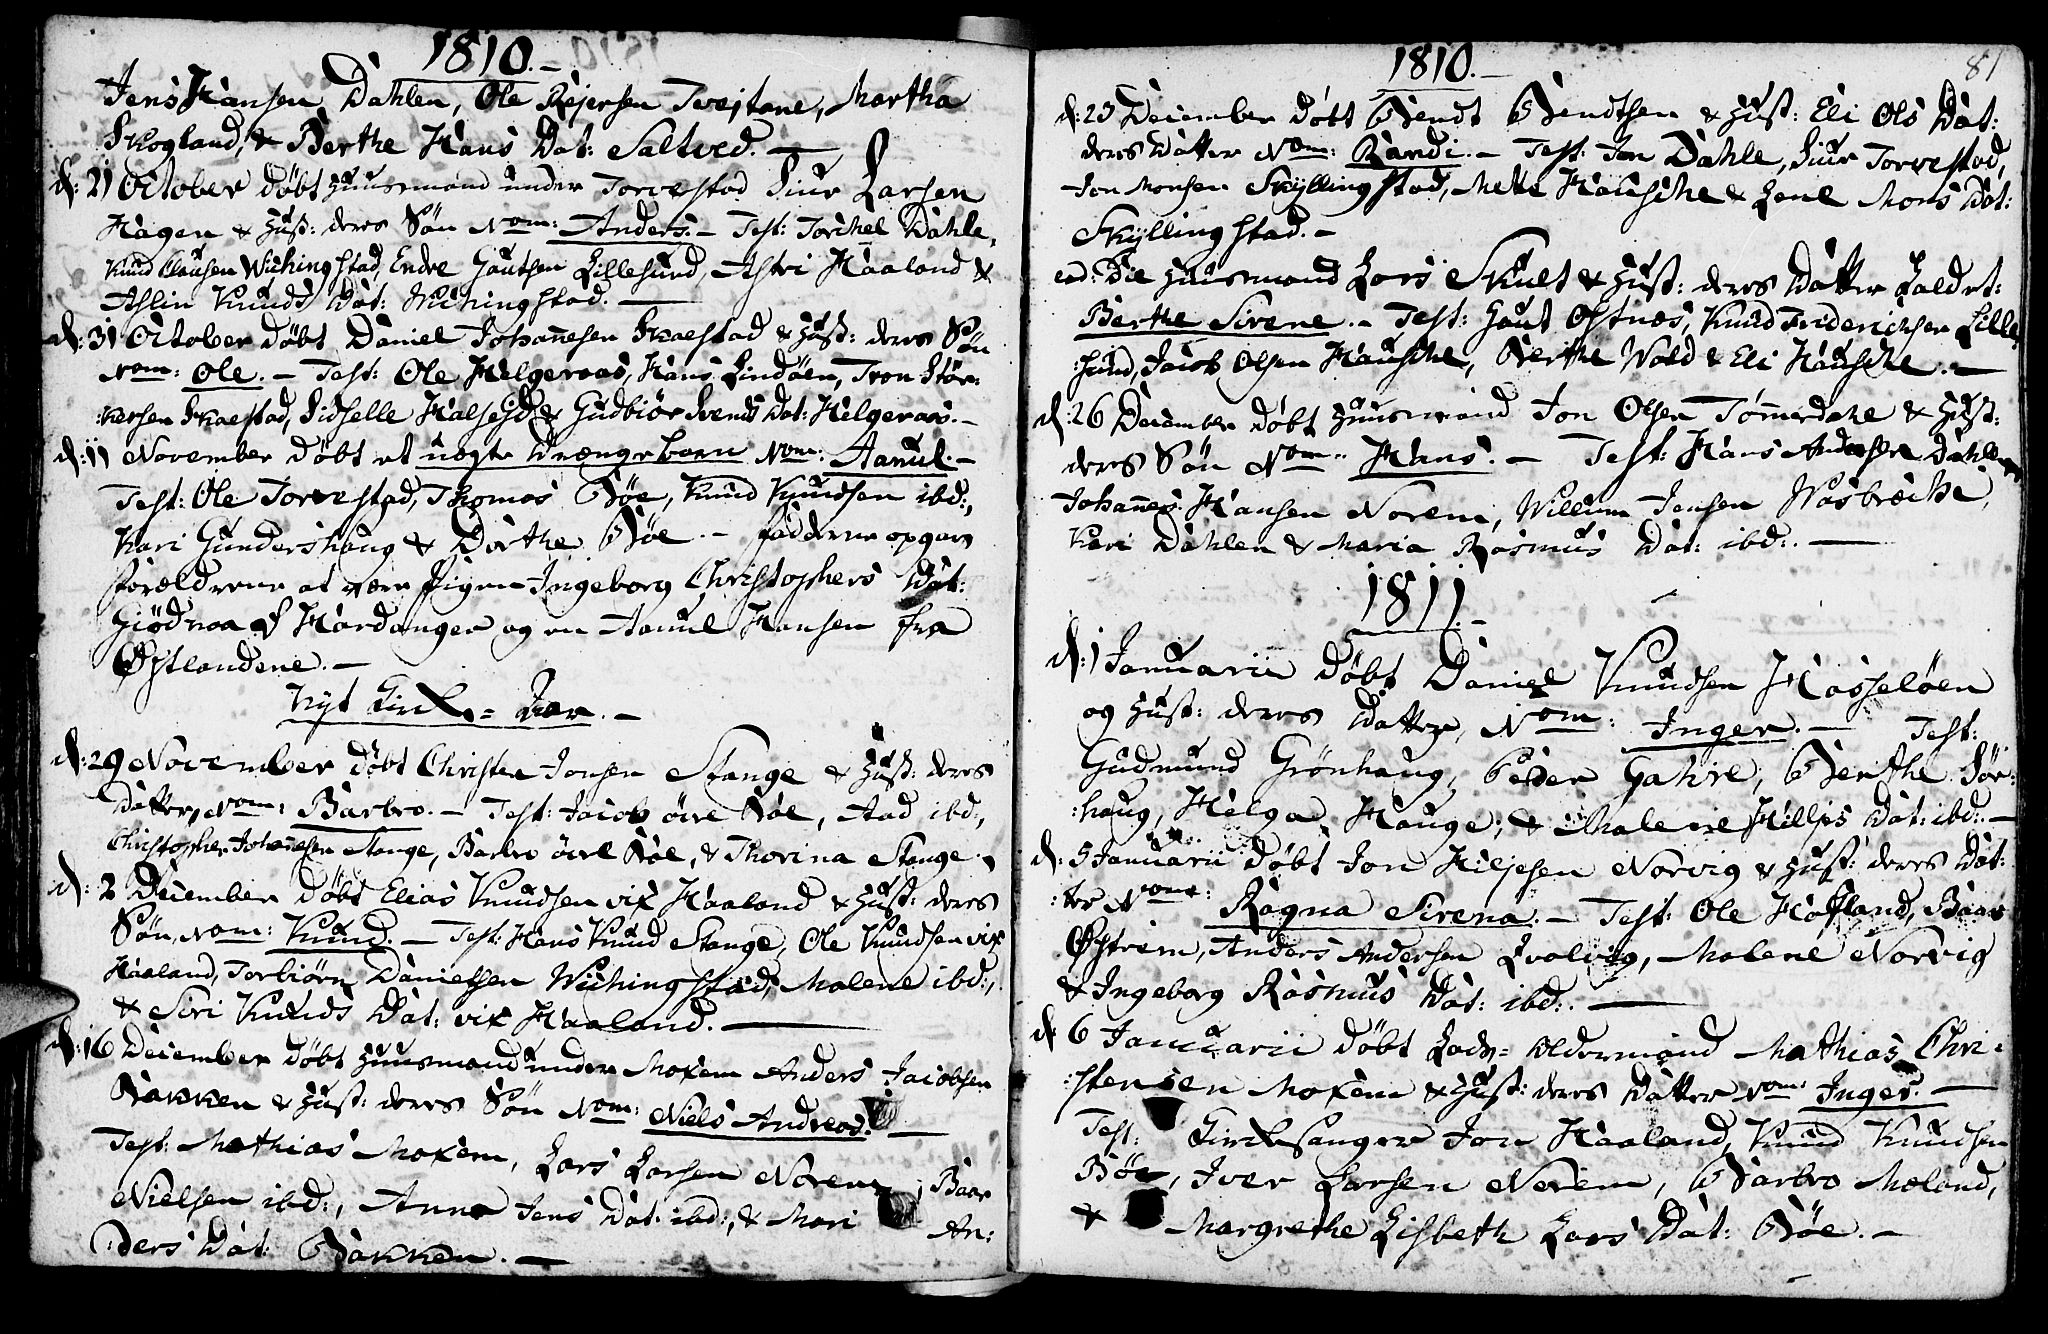 1810.-
Jens Hansen Dahlen, Ole Rejersen Tvejtane, Martha
Skogland, & Berthe Hans Dat: Saltved. —
d: 21 October döbt Huusmand under Torvestad Siur Larsen
Hagen & Hust: deres Sön Nom: Anders. - Test: Torchel Dahle,
Knud Clausen Wichingstad, Endre Gautsen Lillesund, Astri Haaland &
Aslin Knuds Dat: Wichingstad. —
d: 31 October döbt Daniel Johannesen Skaestad & Hust: deres Sön
Nom: Ole. - Test: Ole Helgeraas, Hans Lindöen, Tron Stör:
:kersen Skaestad, Sidselle Halsejd & Gudbiör Svends Dat: Helgeraas. -
d: 11 November döbt et uægte Drængebarn Nom: Aamul. -
Test: Ole Torvestad, Thomas Böe, Knud Knudsen ibd:,
Kari Gundershaug & Dorthe Böe. - Fadderne opgav
Forældrene at være Pigen Ingeborg Christophers Dat:
Giödnaa af Hardanger og en Aamul Hansen fra
Östlandene. -
Nyt Kirke = Aar. -
d: 29 November döbt Christen Jonsen Stange & Hust: deres
Datter, Nom: Barbro. - Test: Jacob övre Böe, Aad ibd:,
Christopher Johannesen Stange, Barbro övre Böe, & Thorina Stange.
d: 2 December döbt Elias Knudsen vix Haaland & Hust: deres
Sön, Nom: Knud. - Test: Hans Knud Stange, Ole Knudsen vix
Haaland, Torbiörn Danielsen Wichingstad, Malene ibd:,
& Siri Knuds Dat: vix Haaland. —
d: 16 December döbt Huusmand under Moxem Anders Jacobsen
Bakken & Hust: deres Sön Nom: Niels Andreas. —
Test: Mathias Moxem, Lars Larsen Norem, Baar
Nielsen ibd:, Anna Jens Dat: ibd:, & Mari An:
:ders Dat: Bakken. —
1810. -
81
d: 23 December döbt Bendt Bendtsen & Hust: Eli Ols Dat:
deres Datter Nom: Randi. - Test: Jon Dahle, Siur Torvestad,
Jon Monsen Skyllingstad, Mette Hausche & Lene Mons Dat:
Skyllingstad. -
eod: Die Huusmand Lars Skult & Hust: deres Datter kaldet:
Berthe Sirene. - Test: Gaut Ostnes, Knud Friderichsen Lille:
:sund, Jacob Olsen Hausche, Berthe Wold & Eli Hausche. —
d: 26 December döbt Huusmand Jon Olsen Tömmerdahl & Hust:
deres Sön Nom: Hans. - Test: Hans Andersen Dahlen,
Johannes Hansen Norem, Willum Jensen Wasbrecke,
Kari Dahlen & Maria Rasmus Dat: ibd:. —
1811. -
d: 1 Januarii döbt Daniel Knudsen Hasselöen
og Hust: deres Datter, Nom: Inger. - Test:
Gudmund Grönhaug, Peder Gahre, Berthe Sör:
:haug, Helga Hauge, & Malene Killjs Dat: ibd:. -
d: 5 Januarii döbt Jon Hiljesen Norvig & Hust: deres Dat:
:ter Nom: Ragna Sirena. - Test: Ole Hofland, Baar
Östrem, Anders Andersen Qvalvig, Malene Norvig
& Ingeborg Rasmus Dat: ibd:. —
d: 6 Januarii döbt Lods= Oldermand Mathias Chri:
:stensen Moxem & Hust: deres Datter Nom: Inger. —
Test: Kirkesanger Jon Haaland, Knud Knudsen
Böe, Iver Larsen Norem, Barbro Moland,
& Margrethe Lisbeth Lars Dat: Böe. -